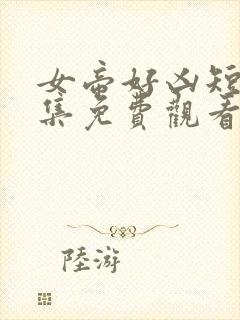 女帝好凶短
集免費觀看
陸游